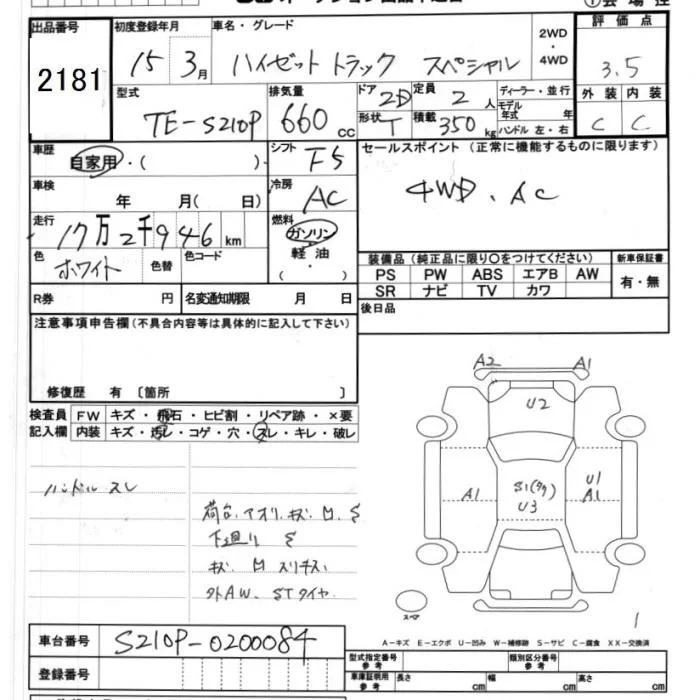 出品番号
2181
初度登録年月
15 3月
車名・グレード
ハイゼット トラック スペシャル
2WD
・
4WD
評価点
3.5
外装 内装
C C
型式
TE-S210P
排気量
660 cc
ドア 2D
形状 T
定員 2 人
積載 350 kg
ディーラー・並行
モデル年式 年
ハンドル 左・右
車歴
自家用・( )
シフト F5
セールスポイント(正常に機能するものに限ります)
4WD、AC
車検
年 月( 日)
冷房
AC
走行
17万2千946 km
燃料
ガソリン
・
軽油
・
( )
色
ホワイト
色替
色コード
装備品(純正品に限り〇をつけてください)
新車保証書
PS PW ABS エアB AW
SR ナビ TV カワ
有・無
R券 円
名変通知期限 月 日
後日品
注意事項申告欄(不具合内容等は具体的に記入して下さい)
修復歴 有〔箇所 〕
検査員記入欄
FW キズ・飛石・ヒビ割・リペア跡・×要
内装 キズ・汚レ・コゲ・穴・スレ・キレ・破レ
ハンドル スレ
荷台、アオリ、キズ、凹、S
下廻り S
キズ 凹 スリキズ、
外AW、STタイヤ、
A2 A1
U2
A1
S1(タク)
U3
U1
A1
スペア
1
A－キズ E－エクボ U－凹み W－補修跡 S－サビ C－腐食 XX－交換済
車台番号
S210P-0200084
登録番号
型式指定番号 参考
類別区分番号 参考
車庫証明用 参考
長さ cm
幅 cm
高さ cm